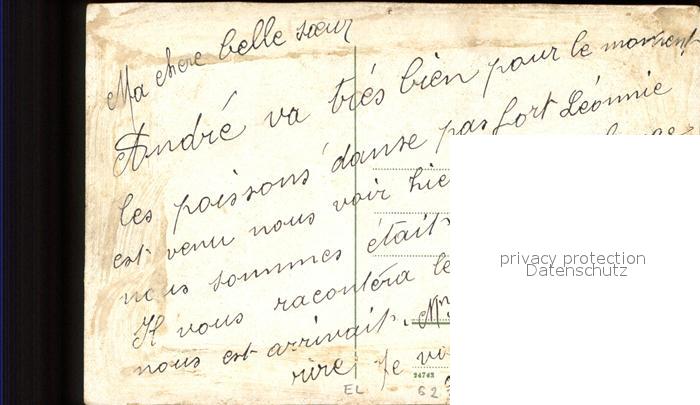 Ma chere belle sœur
André va très bien pour le moment
les poissons danse pas fort Léonnie
est venu nous voir hie
nous sommes était
Il vous racontéra le
nous est arrivait. Mm
rire Je vo
privacy protection
Datenschutz
24742
EL 62